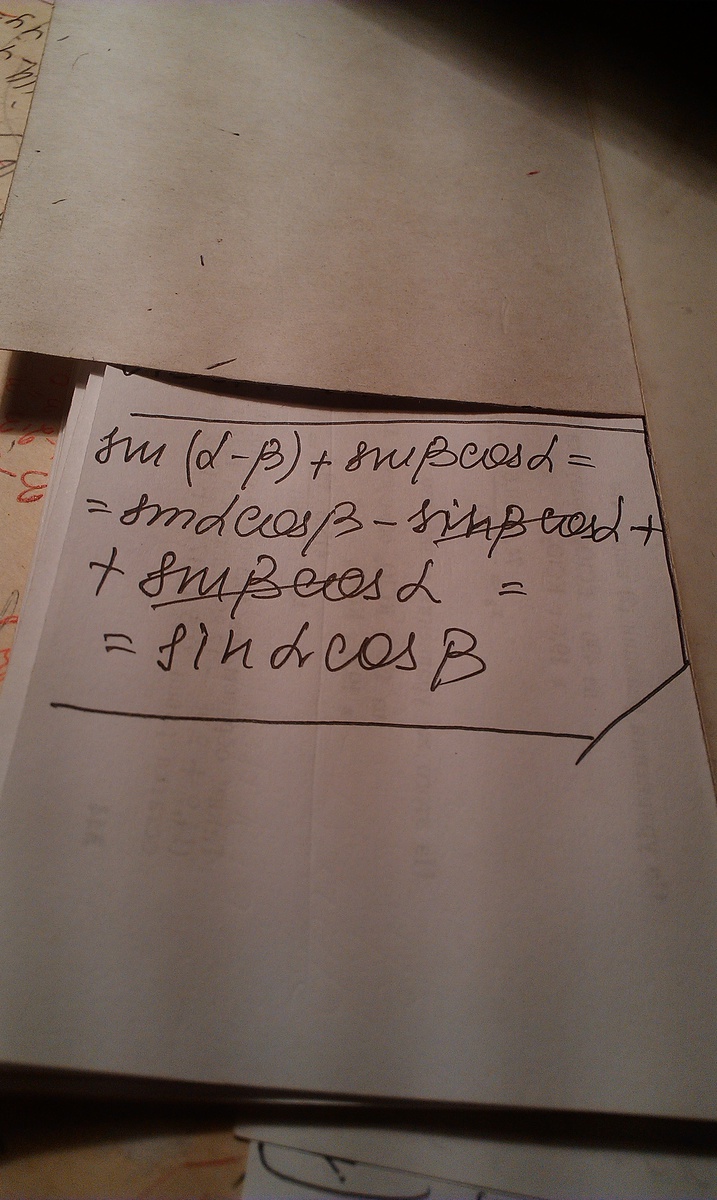 sin (α-β) + sinβcosα =
= sinαcosβ - sinβcosα +
+ sinβcosα =
= sinαcosβ